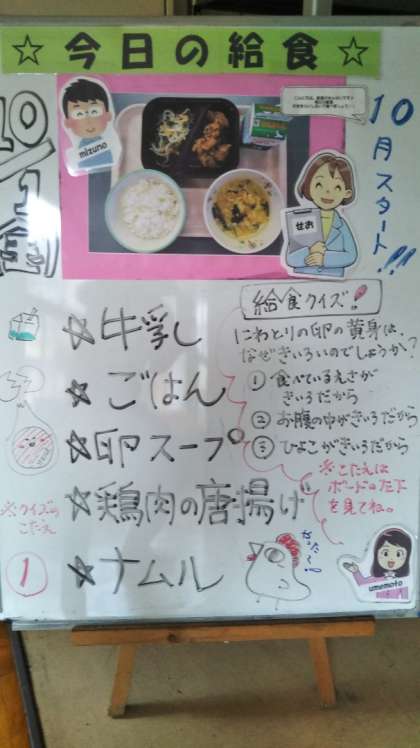 ☆今日の給食☆
mizuno
せお
10月スタート!!
☆牛乳
☆ごはん
☆卵スープ
☆鶏肉の唐揚げ
☆ナムル
給食クイズ!
にわとりの卵の黄身は、
なぜきいろいのでしょうか?
① 食べているえさが
きいろだから
② お腹の中がきいろだから
③ ひよこがきいろだから
※こたえは
ボードの左下
を見てね。
※クイズの
こたえ
1
umemoto